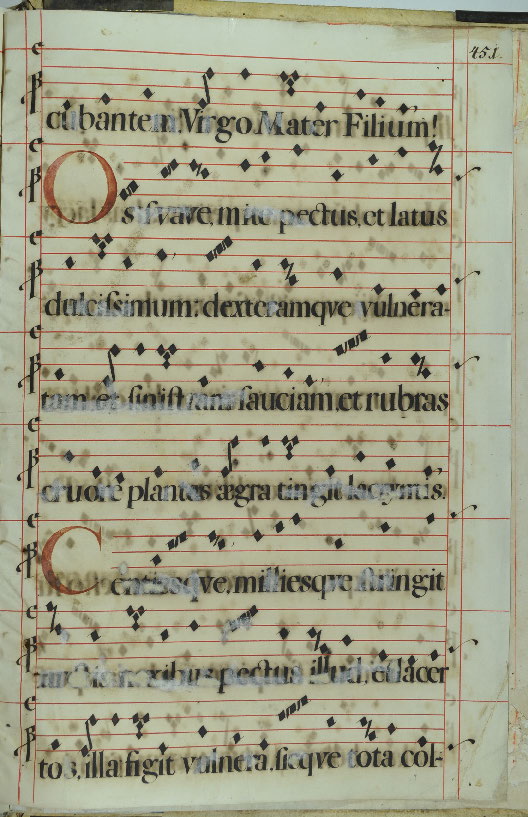 451.
cubantem Virgo Mater Filium!
Os suave, mite pectus, et latus
dulcissimum: dexteramqve vulnera-
tam, et sinistram sauciam, et rubras
cruore plantas ægra tingit lacrymis.
Centiesqve, milliesqve stringit
nexibus pectus illud, et lacer
tos, illa figit vulnera, sicqve tota col-